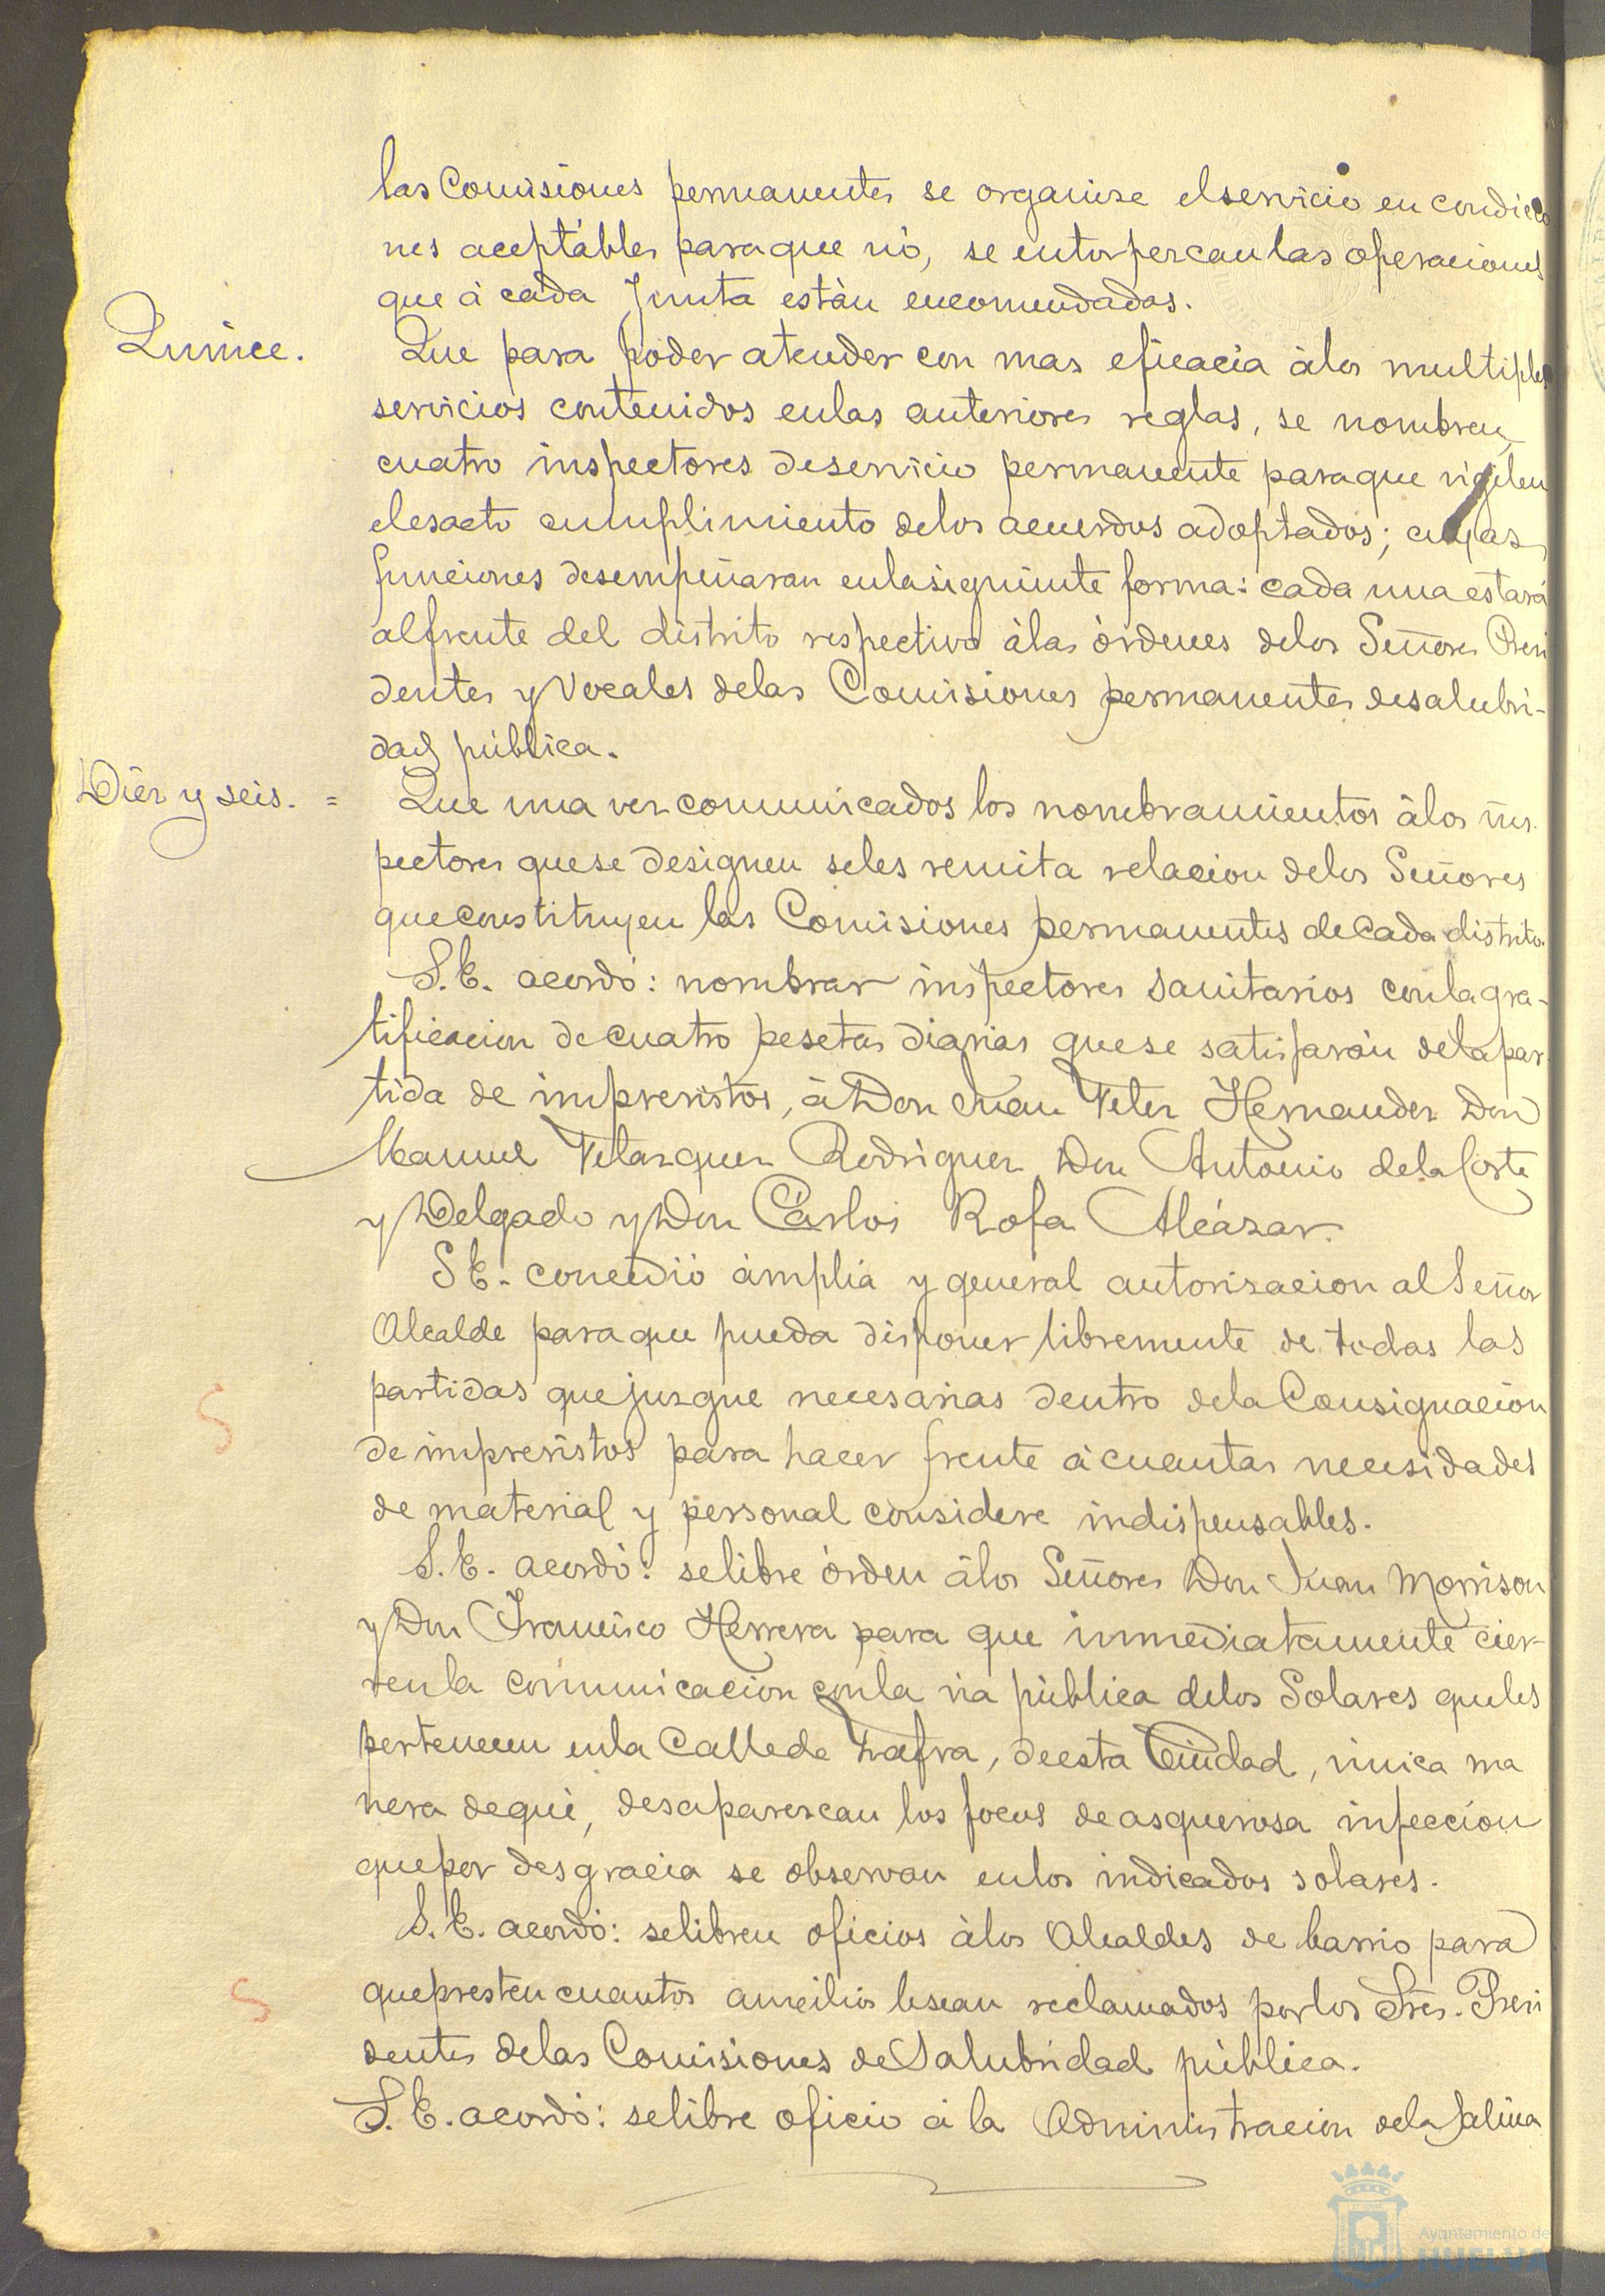 las Comisiones permanentes se organize el servicio en condicio
nes aceptábles para que nó, se entorpezcan las operaciones
que á cada Junta están encomendadas.
Quince. Que para poder atender con mas eficacia á los multiples
servicios contenidos en las anteriores reglas, se nombren,
cuatro inspectores de servicio permanente para que vigilen
el esacto cumplimiento de los acuerdos adoptados; cuyas
funciones desempeñaran en la siguiente forma: cada una estará
al frente del distrito respectivo á las órdenes de los Señores Presi
dentes y Vocales de las Comisiones permanentes de salubri-
dad pública.
Diez y seis. = Que una vez comunicados los nombramientos á los ins-
pectores que se designen se les remita relacion de los Señores
que constituyen las Comisiones permanentes de cada distrito.
S. E. acordó: nombrar inspectores sanitarios con la gra-
tificacion de cuatro pesetas diarias que se satisfarán de la par
tida de imprevistos, á Don Juan Velez Hernandez Don
Manuel Velazquez Rodriguez Don Antonio de la Corte
y Delgado y Don Cárlos Rofa Alcázar.
S E. concedió ámplia y general autorizacion al Señor
Alcalde para que pueda disponer libremente de todas las
partidas que juzgue necesarias dentro de la Consignacion
de imprevistos para hacer frente á cuantas necesidades
de material y personal considere indispensables.
S. E. acordó: se libre órden á los Señores Don Juan Morrison
y Don Francisco Herrera para que inmediatamente cier-
ren la comunicacion con la via pública de los Solares que les
pertenecen en la Calle de Zafra, de esta Ciudad, única ma
nera de que, desaparezcan los focus de asquerosa infeccion
que por desgracia se observan en los indicados solares.
S. E. acordó: se libren oficios á los Alcaldes de barrio para
que presten cuantos auxilios le sean reclamados por los Sres. Presi
dentes de las Comisiones de Salubridad pública.
S. E. acordó: se libre oficio á la Administracion de la Salina
Ayuntamiento de
HUELVA